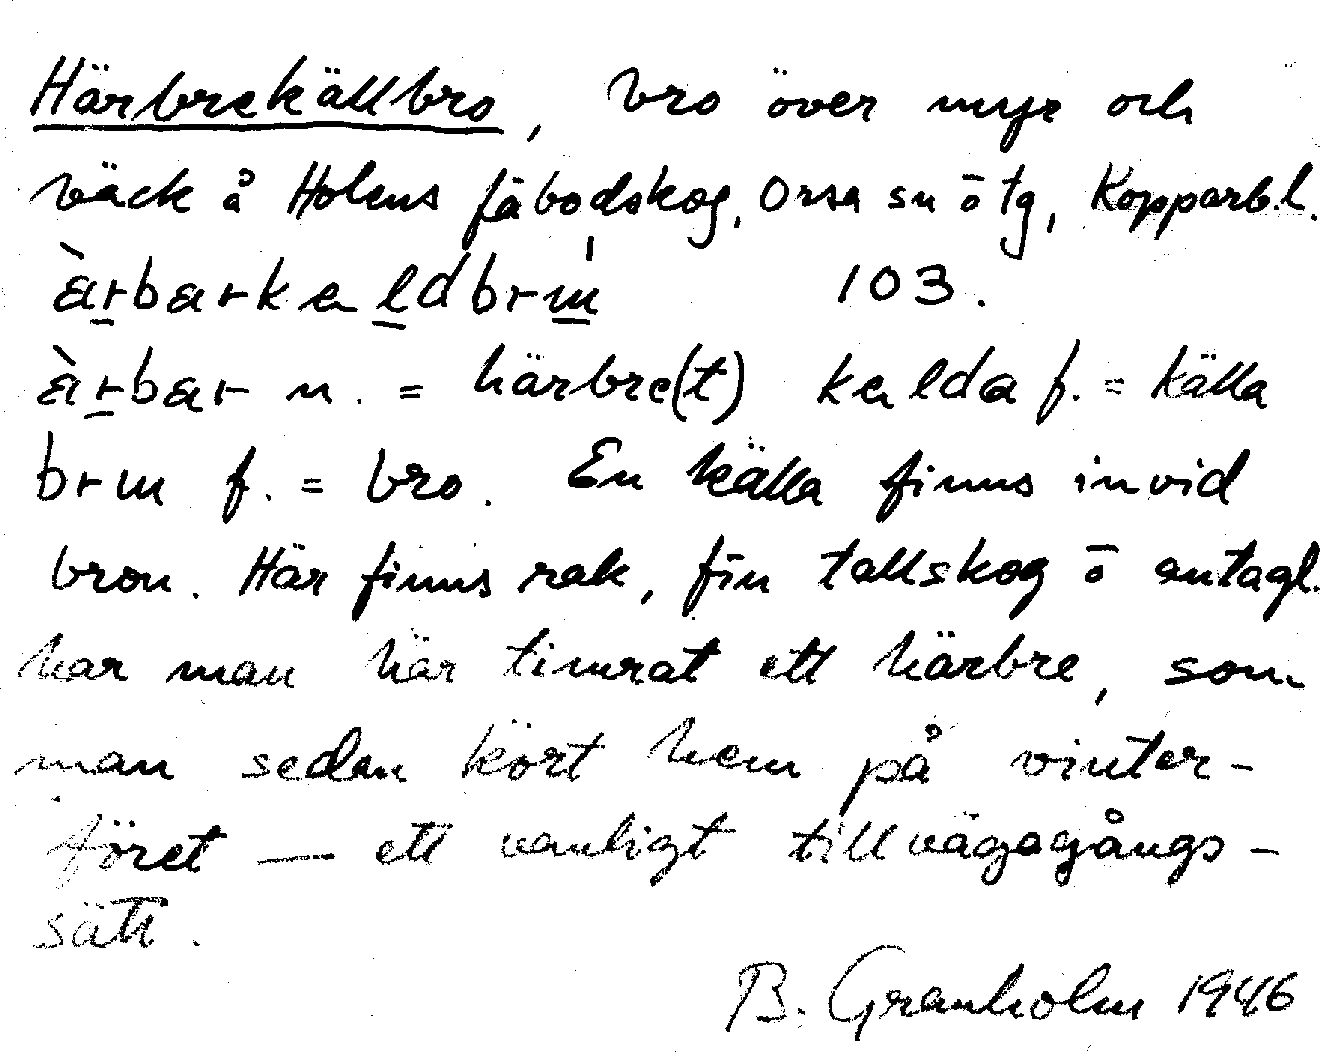 Härbrekällbro, bro över myr och
bäck å Holens fäbodskog, Orsa sn ō tg, Kopparb.l.
àrbarkaldbrɯ́ 103.
àrbar n. = härbre(t) kalda f. = källa
brɯ f. = bro. En källa finns invid
bron. Här finns rak, fin tallskog ō antagl.
har man här timrat ett härbre, som
man sedan kört hem på vinter-
föret — ett vanligt tillvägagångs-
sätt.
B. Granholm 1946